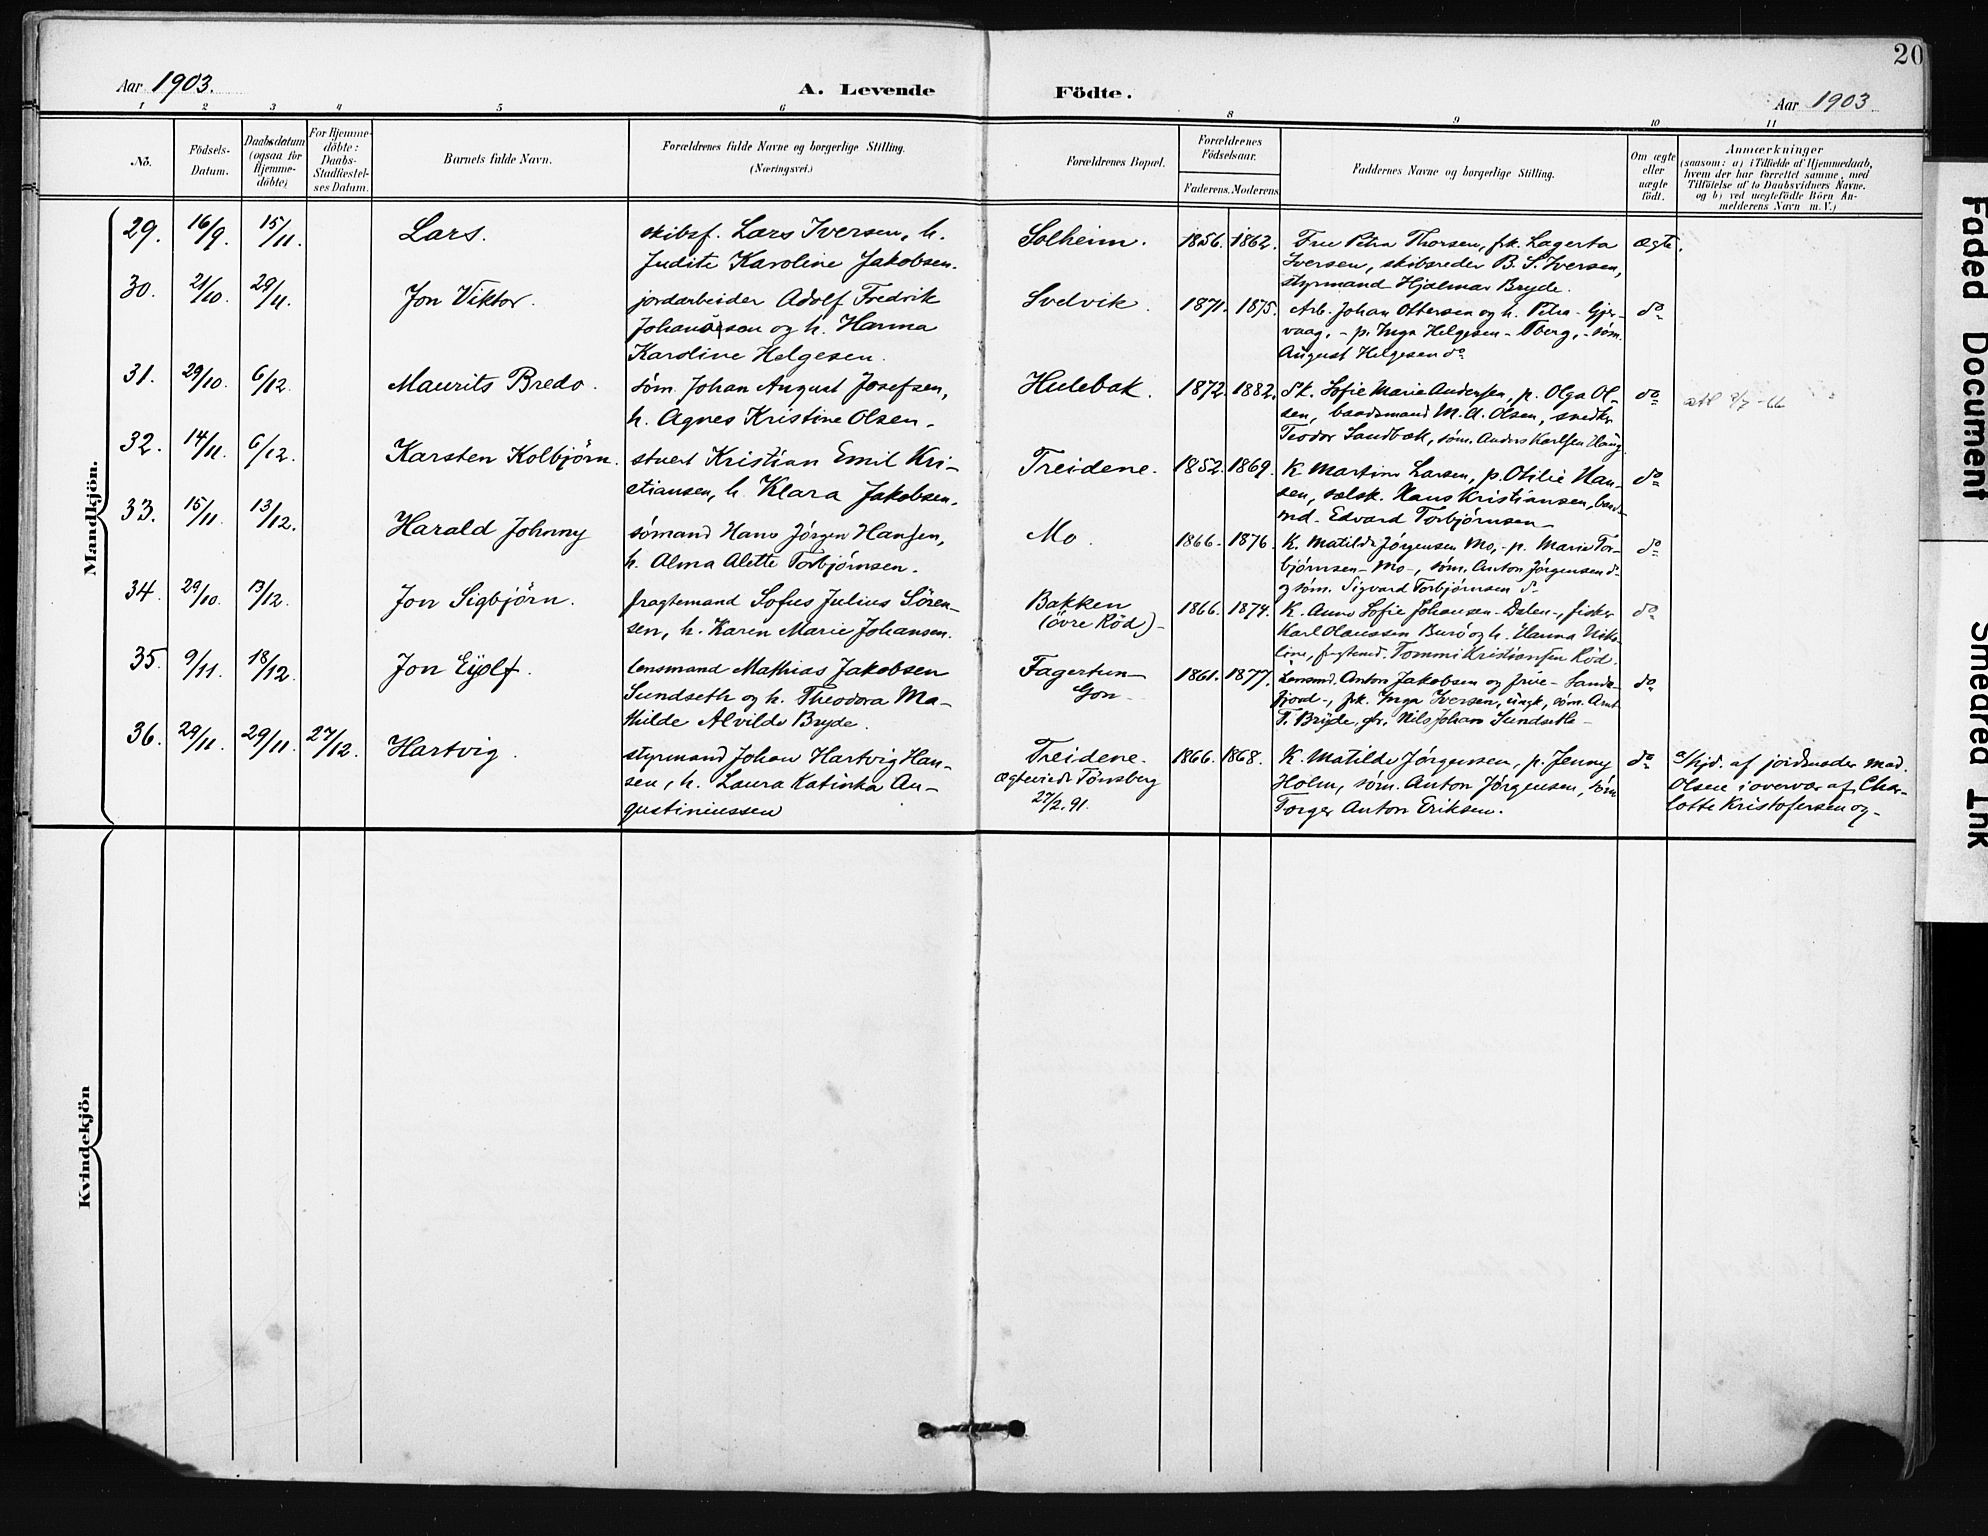 20
Aar 1903.
A. Levende
Födte.
Aar 1903
1 2 3 4 5 6 8 9 10 11
No.
Födsels-
Datum.
Daabsdatum
(ogsaa for
Hjemme-
döbte)
For Hjemme-
döbte:
Daabs-
Stadfæstel-
ses Datum.
Barnets fulde Navn.
Forældrenes fulde Navne og borgerlige Stilling.
(Næringsvei.)
Forældrenes Bopæl.
Forældrenes
Födselsaar.
Faderens. Moderens
Faddernes Navne og borgerlige Stilling.
Om ægte
eller
uægte
födt.
Anmærkninger
(saasom: a) i Tilfælde af Hjemmedaab,
hvem der har forrettet samme, med
Tilföielse af to Daabsvidners Navne.
og b) ved uægtefödte Börn An-
melderens Navn m. V.)
Mandkjön.
29. 16/9. 15/11. Lars.
skibsf. Lars Iversen, h.
Judite Karoline Jakobsen.
Solheim. 1856. 1862.
Frue Petra Thorsen, frk. Lagerta
Iversen, skibsreder B. S. Iversen,
styrmand Hjalmar Bryde.
ægte.
30. 21/10. 29/11. Jon Viktor.
jordarbeider Adolf Fredrik
Johansson og h. Hanna
Karoline Helgesen.
Svelvik. 1871. 1875.
Arb. Johan Ottersen og h. Petra - Gjer-
vaag, - p. Inga Helgesen - Øberg, - søm.
August Helgesen do
do
31. 29/10. 6/12. Maurits Bredo.
søm. Johan August Josefsen,
h. Agnes Kristine Olsen.
Hulebak. 1872. 1882.
Sk. Sofie Marie Andersen, p. Olga Ol-
sen, baadsmand M. A. Olsen, snedker
Teodor Sandbæk, søm. Anders Karlsen Haug.
do
32. 14/11. 6/12. Karsten Kolbjörn.
stuert Kristian Emil Kri-
stiansen, h. Klara Jakobsen.
Treidene. 1852. 1869.
K. Martine Larsen, p. Otilie Han-
sen, sælsk. Hans Kristiansen, baads-
md. Edvard Torbjørnsen
do
33. 15/11. 13/12. Harald Johnny
sømand Hans Jørgen Hansen,
h. Alma Alette Torbjørnsen.
Mo. 1866. 1876.
K. Matilde Jørgensen Mo, - p. Marie Tor-
bjørnsen - Mo -, søm. Anton Jørgensen do
og søm. Sigvard Torbjørnsen do
do
34. 29/10. 13/12. Jon Sigbjörn.
fragtemand Sofus Julius Sören-
sen, h. Karen Marie Johansen.
Bakken
(övre Röd) 1866. 1874.
K. Anne Sofie Johansen - Dalen -, fisker
Karl Olaussen Burö og h. Hanna Niko-
line, fragtemd. Tommi Kristiansen Röd.
do
35. 9/11. 18/12. Jon Eyolf.
lensmand Mathias Jakobsen
Sundseth og h. Theodora Ma-
thilde Alvilde Bryde.
Fagertun
Gon 1861. 1877.
Lensmd. Anton Jakobsen og frue - Sande-
fjord -, frk. Inga Iversen, ungk. søm. Arnt
T. Bryde, gbr. Nils Johan Sundseth -
do
36. 29/11. 29/11. 27/12. Hartvig.
styrmand Johan Hartvig Han-
sen, h. Laura Katinka Au-
gustiniussen
Treidene.
ægteviede Tönsberg
27/2. 91. 1866. 1868.
K. Matilde Jørgensen, p. Jenny
Holm, søm. Anton Jørgensen, søm.
Torger Anton Eriksen.
do
a/ hjd. af jordmoder mad.
Olsen i overvær af Char-
lotte Kristofersen og -
Kvindekjön
Faded Document
Smeared Ink